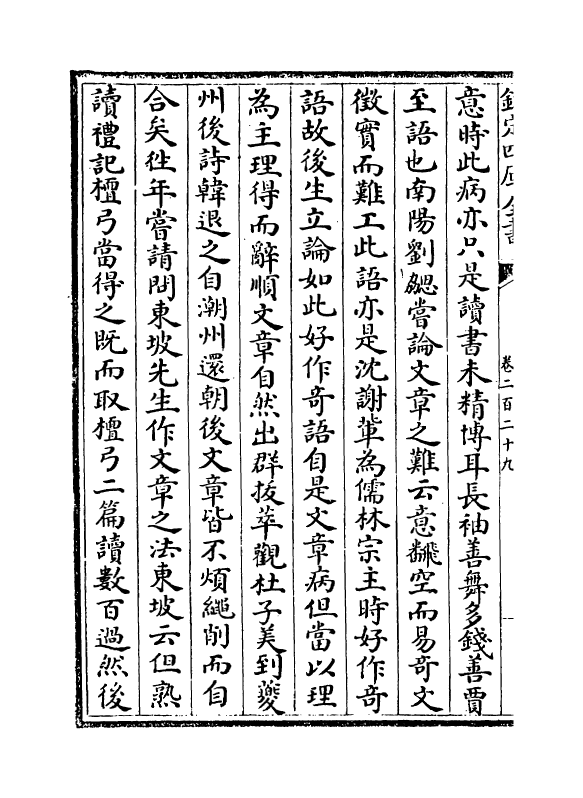 欽定四庫全書
卷二百二十九
意時此病亦只是讀書未精博耳長袖善舞多錢善賈
至語也南陽劉勰嘗論文章之難云意飜空而易奇文
徵實而難工此語亦是沈謝軰為儒林宗主時好作奇
語故後生立論如此好作奇語自是文章病但當以理
為主理得而辭順文章自然出群抜萃觀杜子美到夔
州後詩韓退之自潮州還朝後文章皆不煩繩削而自
合矣徃年嘗請問東坡先生作文章之法東坡云但熟
讀禮記檀弓當得之既而取檀弓二篇讀數百過然後